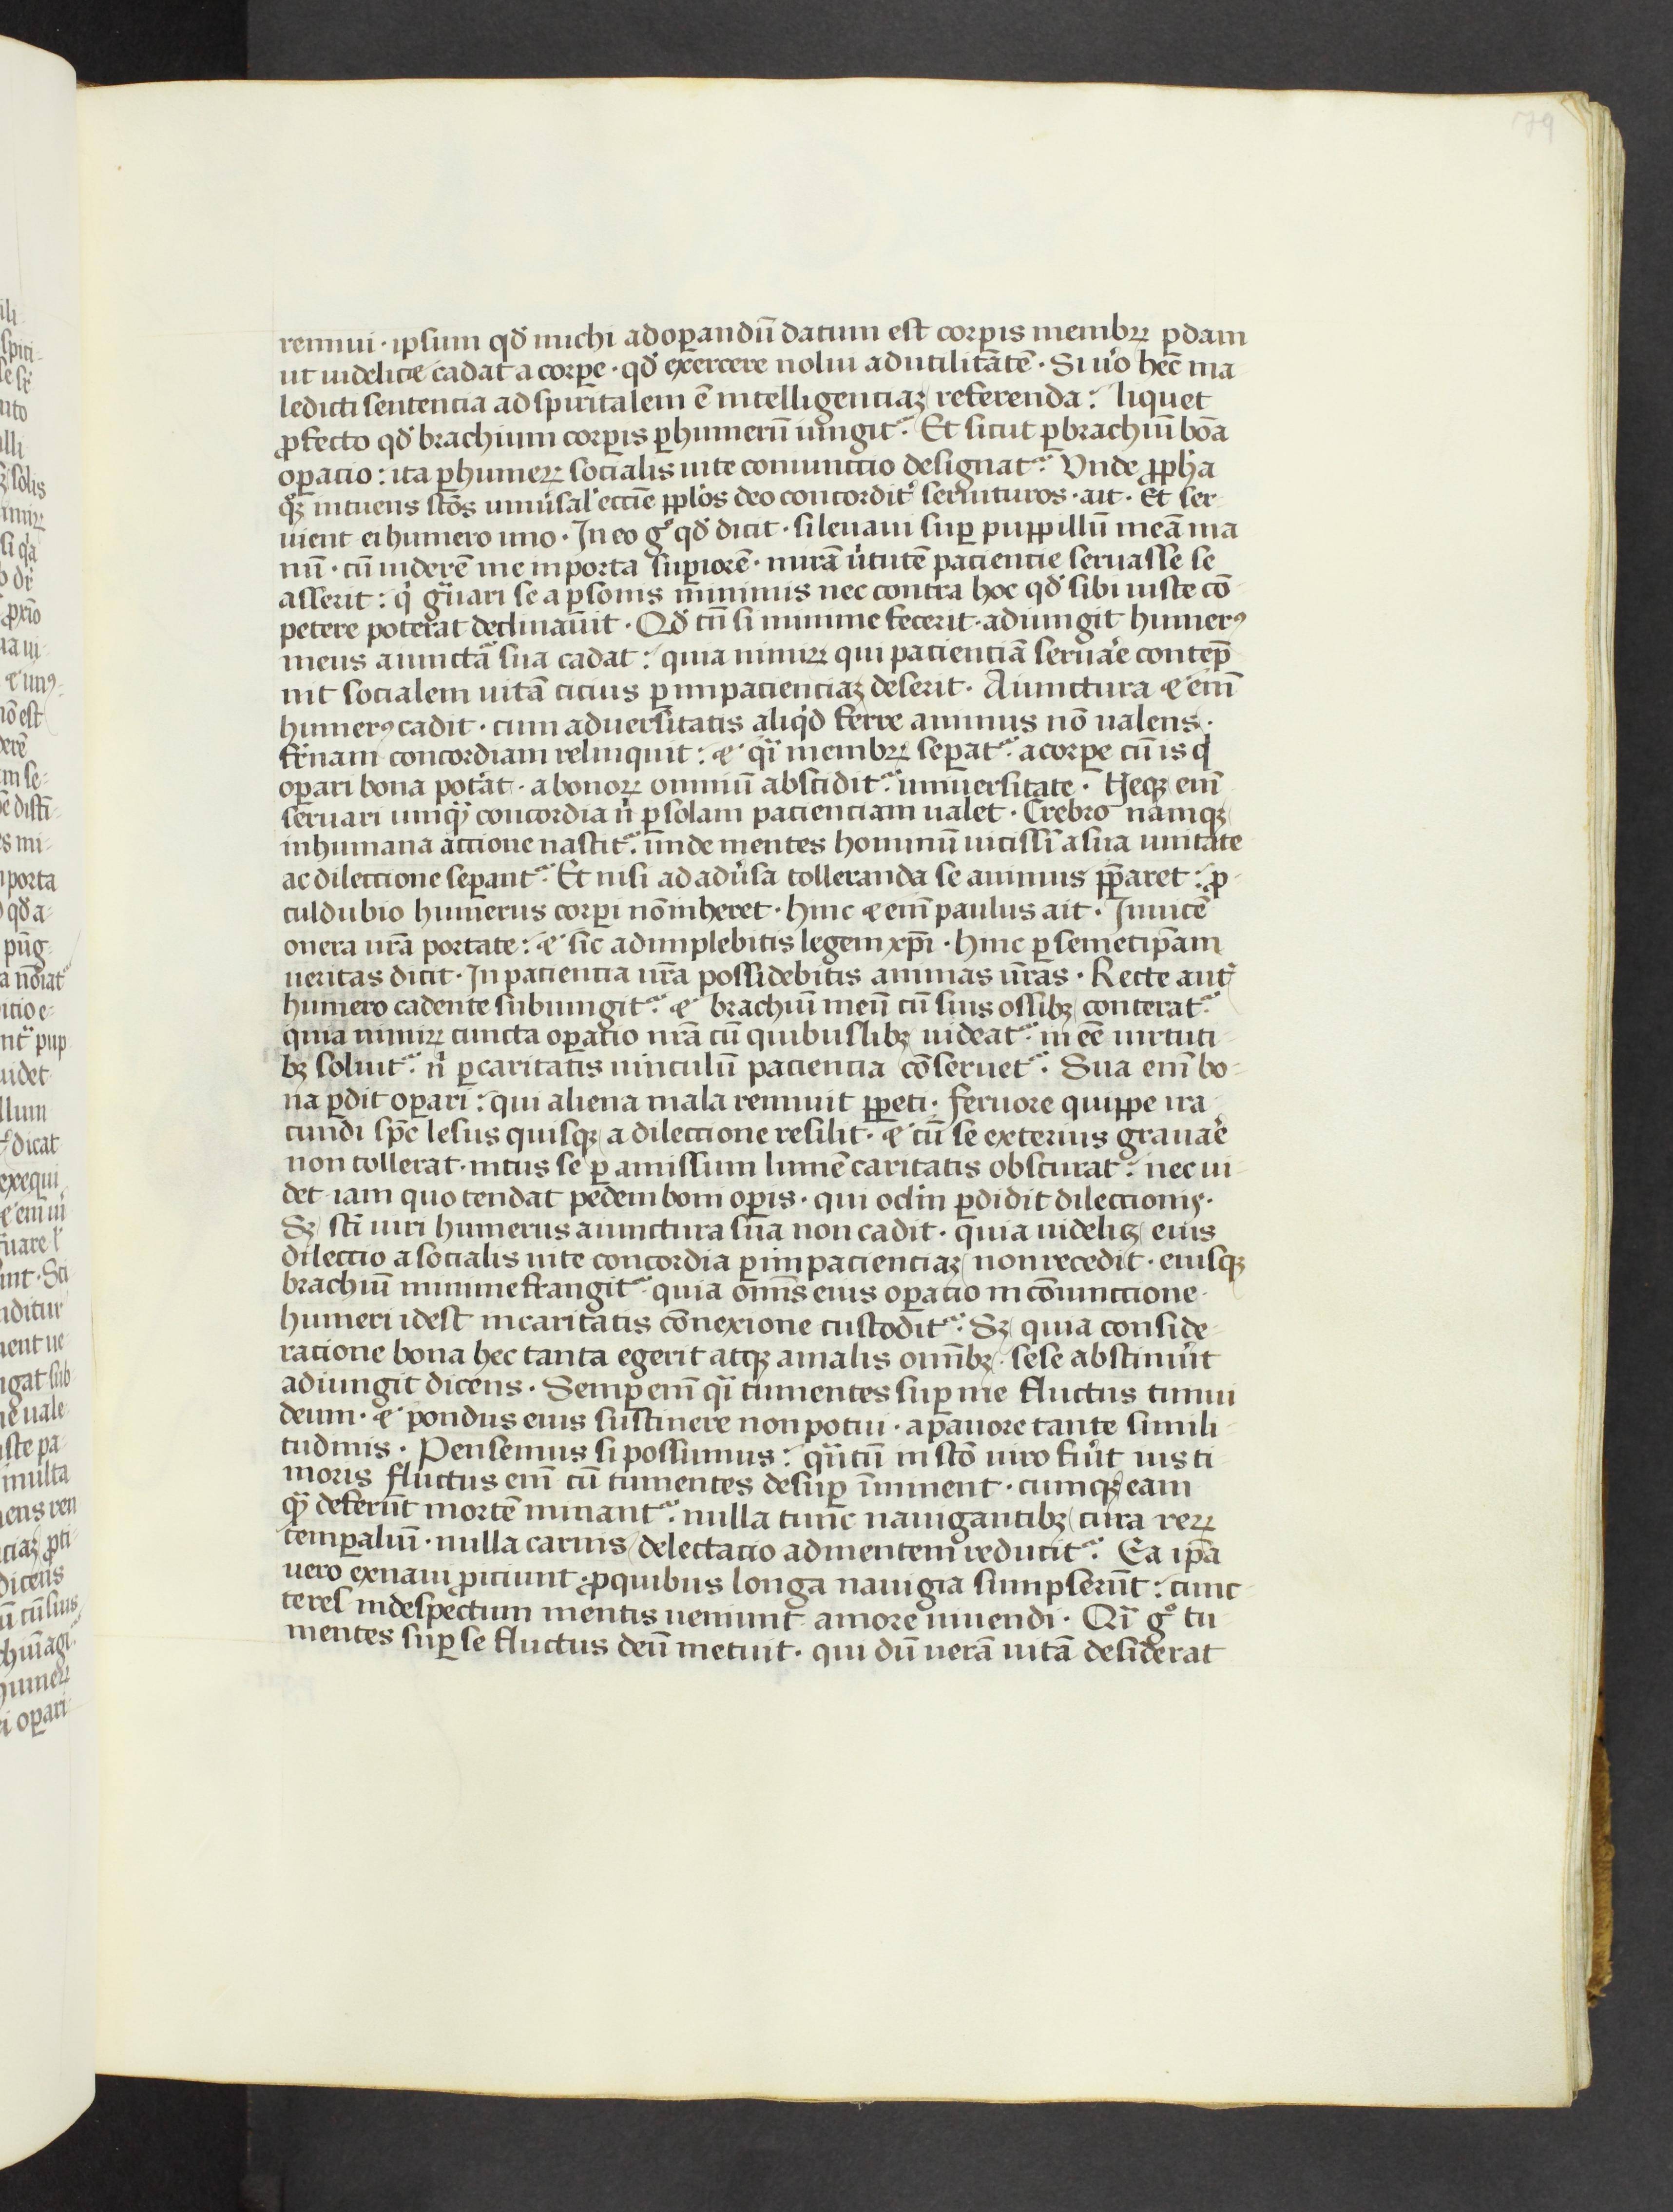 79
rennui · ipsum qd̕ michi ad op̲andū datum est corp̲is membrꝝ p̲dam
ut uidelicꝫ cadat a corp̲e · qd̕ exercere nolui ad utilitātē · Si ùo hec̄ ma
ledicti sentencia ad spiritalem ē intelligenciaꝫ referenda : liquet
ꝓfecto qd̕ brachium corp̲is ꝑ humerū iungit᷑ . Et sicut ꝑ brachiū bōa
oꝑacio : ita ꝑ humerꝝ socialis uite coniunctio designat᷑ . Vnde ꝓph̄a
qͦꝫ intuens sc̄os uniūsal᷑ ecc̄ie pp̄l̕os deo concordit̕ seruituros · ait · Et ser-
uient ei humero uno · In eo gͦ qd̕ dicit · si leuaui suꝑ puppillū meā ma
nū · cū uiderē me in porta suꝑiorē · mirā ùtutē paciencie seruasse se
asserit : qͥ gᷓuari se a ꝑsonis minimis nec contra hoc qd̕ sibi iuste cō-
petere poterat declinauit · Qd̕ tn̄ si minime fecerit · adiungit humerꝰ
meus a iunctᷓa sua cadat : quia nimirꝝ qui pacienciā seruàe contēp
nit socialem uitā cicius ꝑ impacienciaꝫ deserit · A iunctura ⁊ eni̅
humerꝰ cadit · cum aduersitatis aliqͥd ferre animus nō ualens ·
fr̄nam concordiam relinquit : ⁊ qͣi membrꝝ seꝑat᷑ . a corꝑe cū is qͥ
oꝑari bona potat̕ · a bonoꝝ omniū abscidit᷑ uniuersitate · Neqꝫ eni̅
seruari unqᷓ concordia ni̕ ꝑ solam pacienciam ualet · Crebro namqꝫ
in humana accione nascit᷑ . unde mentes hominū uicissi̅ a sua unitate
ac dileccione seꝑant᷑ . Et nisi ad adùsa tolleranda se animus pp̄aret : ꝓ-
culdubio humerus corpi nō inheret · hinc ⁊ eni̅ paulus ait · Inuicē
onera ur̄a portate : ⁊ sic adimplebitis legem xp̄i · hinc ꝑ semetip̄am
ueritas dicit · In paciencia ur̄a possidebitis animas ur̄as · Recte aut̄
humero cadente subiungit᷑ . ⁊ brachiū meū cū suis ossibꝫ conterat᷑
quia nimirꝝ cuncta oꝑacio nr̄a cū quibuslibꝫ uideat᷑ in eē uirtuti-
bꝫ soluit᷑ . ni̕ ꝑ caritatis uinculū paciencia cōseruet᷑ . Sua eni̅ bo-
na ꝑdit oꝑari : qui aliena mala rennuit pꝑeti · feruore quippe ira
cundi sp̄c lesus quisqꝫ a dileccione resilit · ⁊ cū se exterius grauàe
non tollerat · intus se ꝑ amissum lumē caritatis obscurat : nec ui-
det iam quo tendat pedem boni oꝑis · qui oclm̄ ꝑdidit dileccionis ·
Sꝫ sc̄i uiri humerus a iunctura sua non cadit · quia uidelicꝫ eius
dileccio a socialis uite concordia ꝑ impacienciaꝫ non recedit · eiusqꝫ
brachiū minime frangit᷑ quia omi̅s eius oꝑacio in cōiunccione-
humeri id est in caritatis cōnexione custodit᷑ . Sꝫ quia conside-
racione bona hec tanta egerit atqꝫ a malis omi̅bꝫ · sese abstinuit̕
adiungit dicens · Semꝑ eni̅ qͣi tumentes suꝑ me fluctus timui
deum · ⁊ pondus eius sustinere non potui · a pauore tante simili-
tudinis · Pensemus si possumus : qᷓtū in sc̄o uiro fiu̅t uis ti-
moris fluctus eni̅ cū tumentes desuꝑ īminent · cumqꝫ eam
qᷓ deferūt mortē minant᷑ . nulla tunc nauigantibꝫ cura reꝝ
temꝑaliū · nulla carnis delectacio ad mentem reducit᷑ . Ea ip̄a
uero ex naui ꝓiciunt · ꝓ quibus longa nauigia sumpserūt : cunc-
te res in despectum mentis ueniunt amore uiuendi · Qi̅ gͦ tu-
mentes suꝑ se fluctus deū metuit · qui dū uerā uitā desiderat